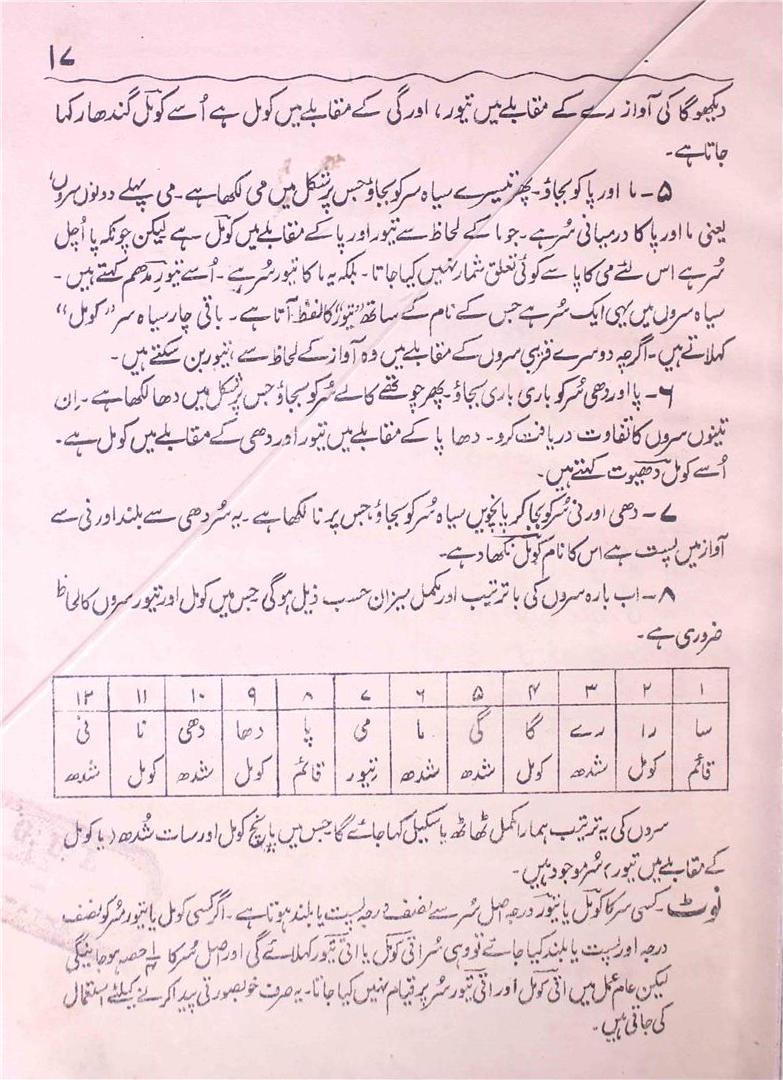 ۱۷
دیکھو گا کی آواز رے کے مقابلے میں تیور، اور گی کے مقابلے میں کومل ہے اُسے کومل گندھار کہا
جاتا ہے۔
۵۔ ما اور پا کو بجاؤ۔ پھر تیسرے سیاہ سر کو بجاؤ جس پر شکل میں می لکھا ہے۔ می پہلے دونوں سروں
یعنی ما اور پا کا درمیانی سُر ہے۔ جو ما کے لحاظ سے تیور اور پا کے مقابلے میں کومل ہے لیکن چونکہ پا اُچل
سُر ہے اس لئے می کا پا سے کوئی تعلق شمار نہیں کیا جاتا۔ بلکہ یہ ما کا تیور سُر ہے۔ اُسے تیور مدھم کہتے ہیں۔
سیاہ سروں میں یہی ایک سُر ہے جس کے نام کے ساتھ "تیور" کا لفظ آتا ہے۔ باقی چار سیاہ سر "کومل"
کہلاتے ہیں۔ اگرچہ دوسرے قریبی سروں کے مقابلے میں وہ آواز کے لحاظ سے تیور بن سکتے ہیں۔
۶۔ پا اور دھی سُر کو باری باری بجاؤ۔ پھر چوتھے کالے سُر کو بجاؤ جس پر شکل میں دھا لکھا ہے۔ اِن
تینوں سروں کا تفاوت دریافت کرو۔ دھا پا کے مقابلے میں تیور اور دھی کے مقابلے میں کومل ہے۔
اُسے کومل دھیوت کہتے ہیں۔
۷۔ دھی اور نی سُر کو بجا کر پانچویں سیاہ سُر کو بجاؤ جس پر نا لکھا ہے۔ یہ سُر دھی سے بلند اور نی سے
آواز میں پست ہے اس کا نام کومل نکھاد ہے۔
۸۔ اب بارہ سروں کی با ترتیب اور مکمل میزان حسب ذیل ہوگی جس میں کومل اور تیور سروں کا لحاظ
ضروری ہے۔
۱ ۲ ۳ ۴ ۵ ۶ ۷ ۸ ۹ ۱۰ ۱۱ ۱۲
سا را رے گا گی ما می پا دھا دھی نا نی
قائم کومل شدھ کومل شدھ شدھ تیور قائم کومل شدھ کومل شدھ
سروں کی یہ ترتیب ہمارا مکمل ٹھاٹھ یا سکیل کہا جائے گا جس میں پانچ کومل اور سات شُدھ (یا کومل
کے مقابلے میں تیور) سُر موجود ہیں۔
نوٹ۔ کسی سر کا کومل یا تیور درجہ اصل سُر سے نصف درجہ پست یا بلند ہوتا ہے۔ اگر کسی کومل یا تیور سُر کو نصف
درجہ اور پست یا بلند کیا جائے تو وہی سُر اتی کومل یا اتی تیور کہلائے گی اور اصل سُر کا حصہ ہو جائیگی
لیکن عام عمل میں اتی کومل اور اتی تیور سُر پر قیام نہیں کیا جاتا۔ یہ صرف خوبصورتی پیدا کرنے کیلئے استعمال
کی جاتی ہیں۔